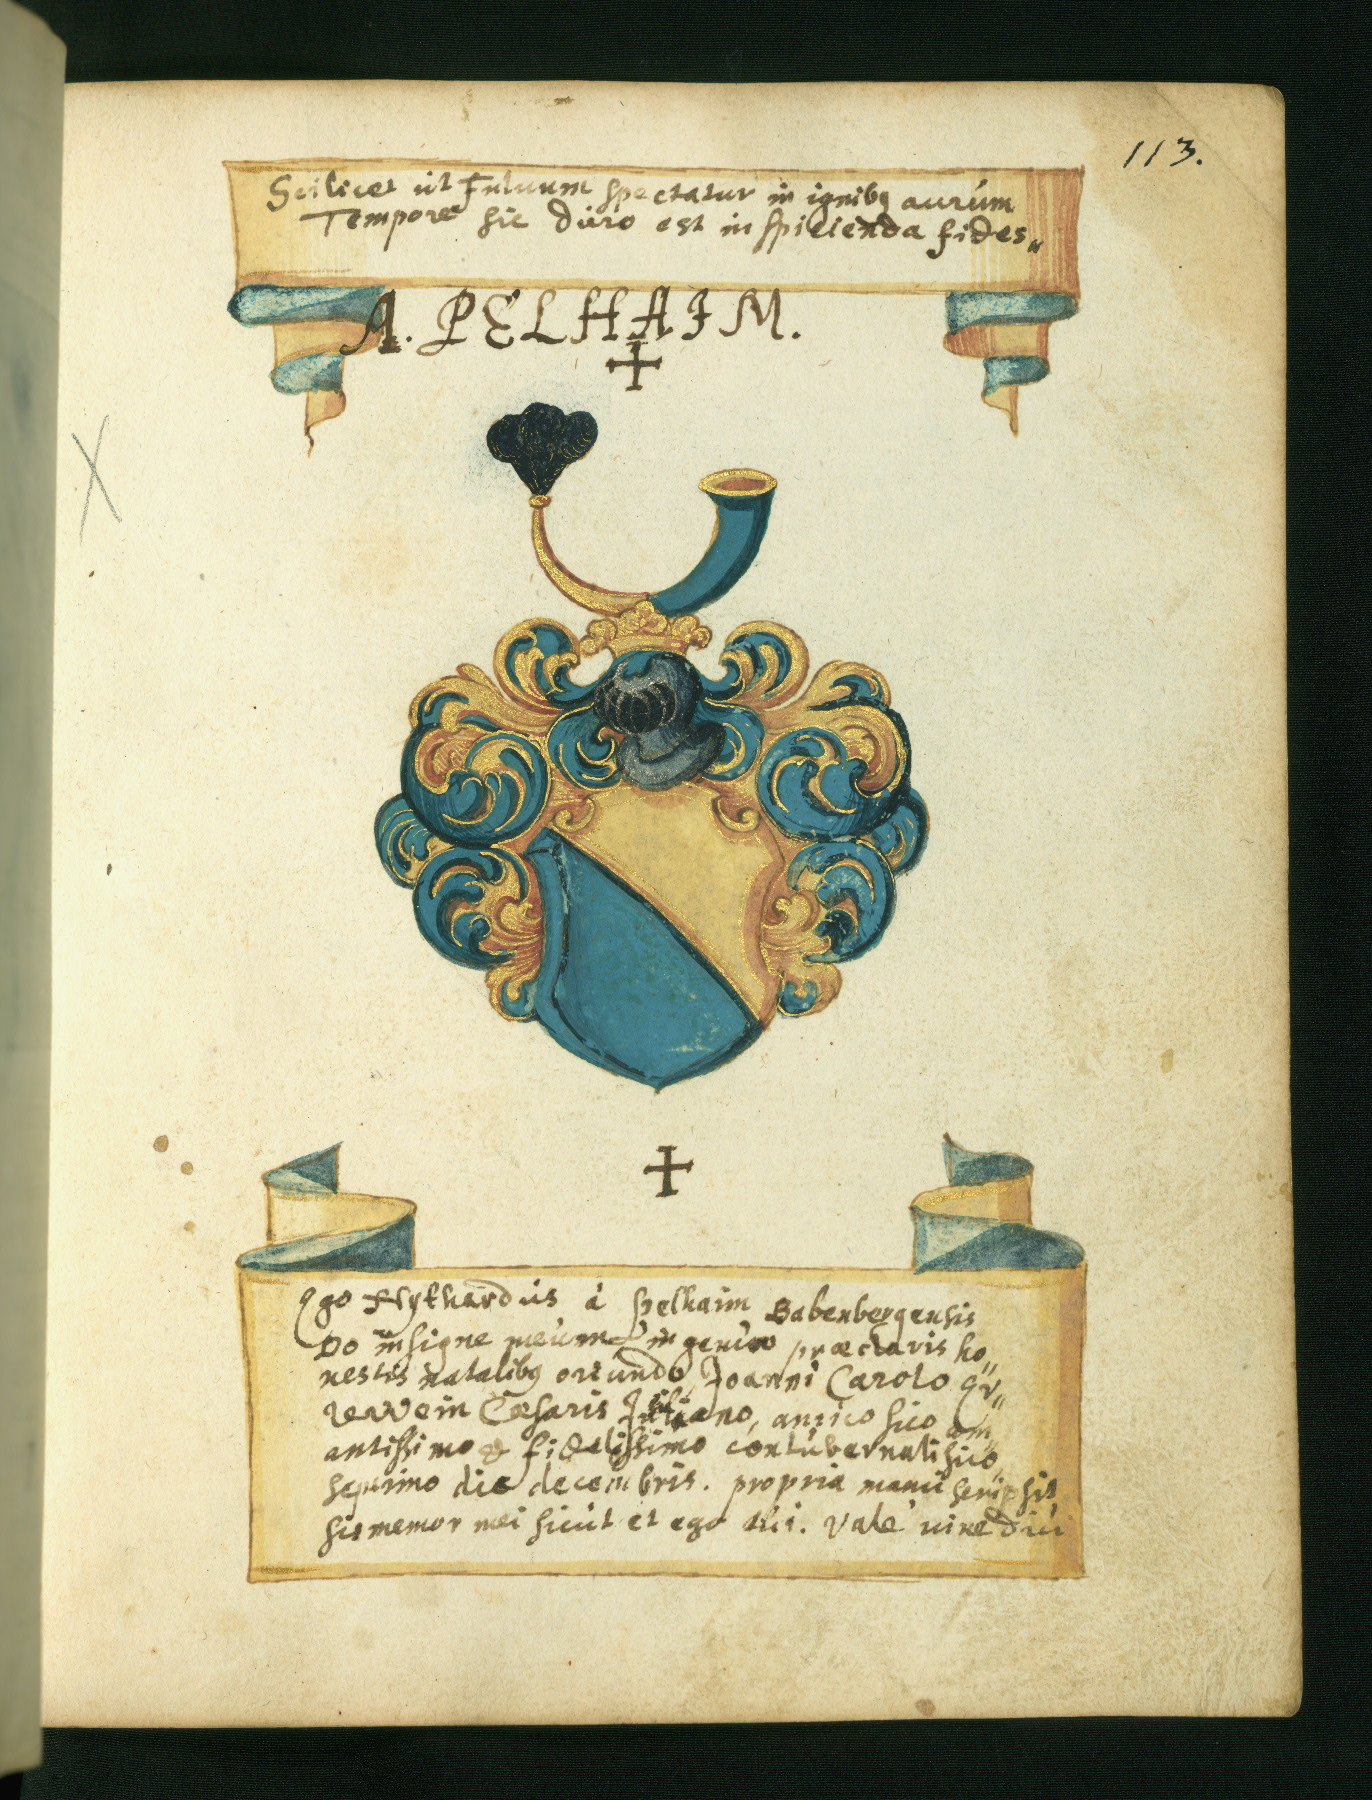 113.
Scilicet ut Fuluum spectatur in ignibꝫ aurúm
Tempore sic duro est in spicienda fides„
A. PELHAIM.
Ego Nythardus á Pelhaim Babenbergensis
Do insigne meum ingenuo præclaris ho„
nestis natalibꝫ oriundo, Joanni Carolo
Cæsaris amico suo am„
antissimo & fidelissimo contubernali suo,
septimo die decembris. propria manu scripsit
sis memor mei sicút et ego tui. Vale uiue diú